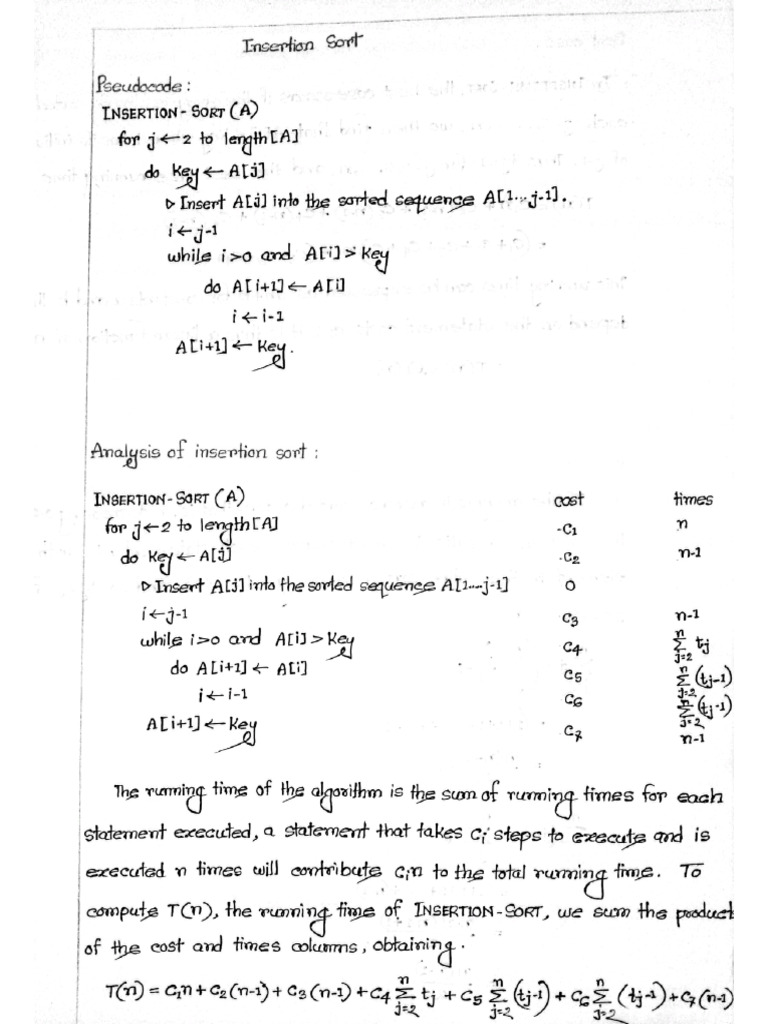 Insertion Sort
Pseudocode:
INSERTION-SORT (A)
for j ← 2 to length[A]
do Key ← A[j]
▷ Insert A[j] into the sorted sequence A[1...j-1].
i ← j-1
while i>0 and A[i] > Key
do A[i+1] ← A[i]
i ← i-1
A[i+1] ← Key.
Analysis of insertion sort:
INSERTION-SORT (A) cost times
for j ← 2 to length[A] C₁ n
do Key ← A[j] C₂ n-1
▷ Insert A[j] into the sorted sequence A[1....j-1] 0
i ← j-1 C₃ n-1
while i>0 and A[i] > Key C₄ ∑_{j=2}^{n} tj
do A[i+1] ← A[i] C₅ ∑_{j=2}^{n} (tj-1)
i ← i-1 C₆ ∑_{j=2}^{n} (tj-1)
A[i+1] ← Key C₇ n-1
The running time of the algorithm is the sum of running times for each
statement executed, a statement that takes Ci steps to execute and is
executed n times will contribute Cin to the total running time. To
compute T(n), the running time of INSERTION-SORT, we sum the product
of the cost and times columns, obtaining.
T(n) = C₁n + C₂(n-1) + C₃(n-1) + C₄ ∑_{j=2}^{n} tj + C₅ ∑_{j=2}^{n} (tj-1) + C₆ ∑_{j=2}^{n} (tj-1) + C₇(n-1)